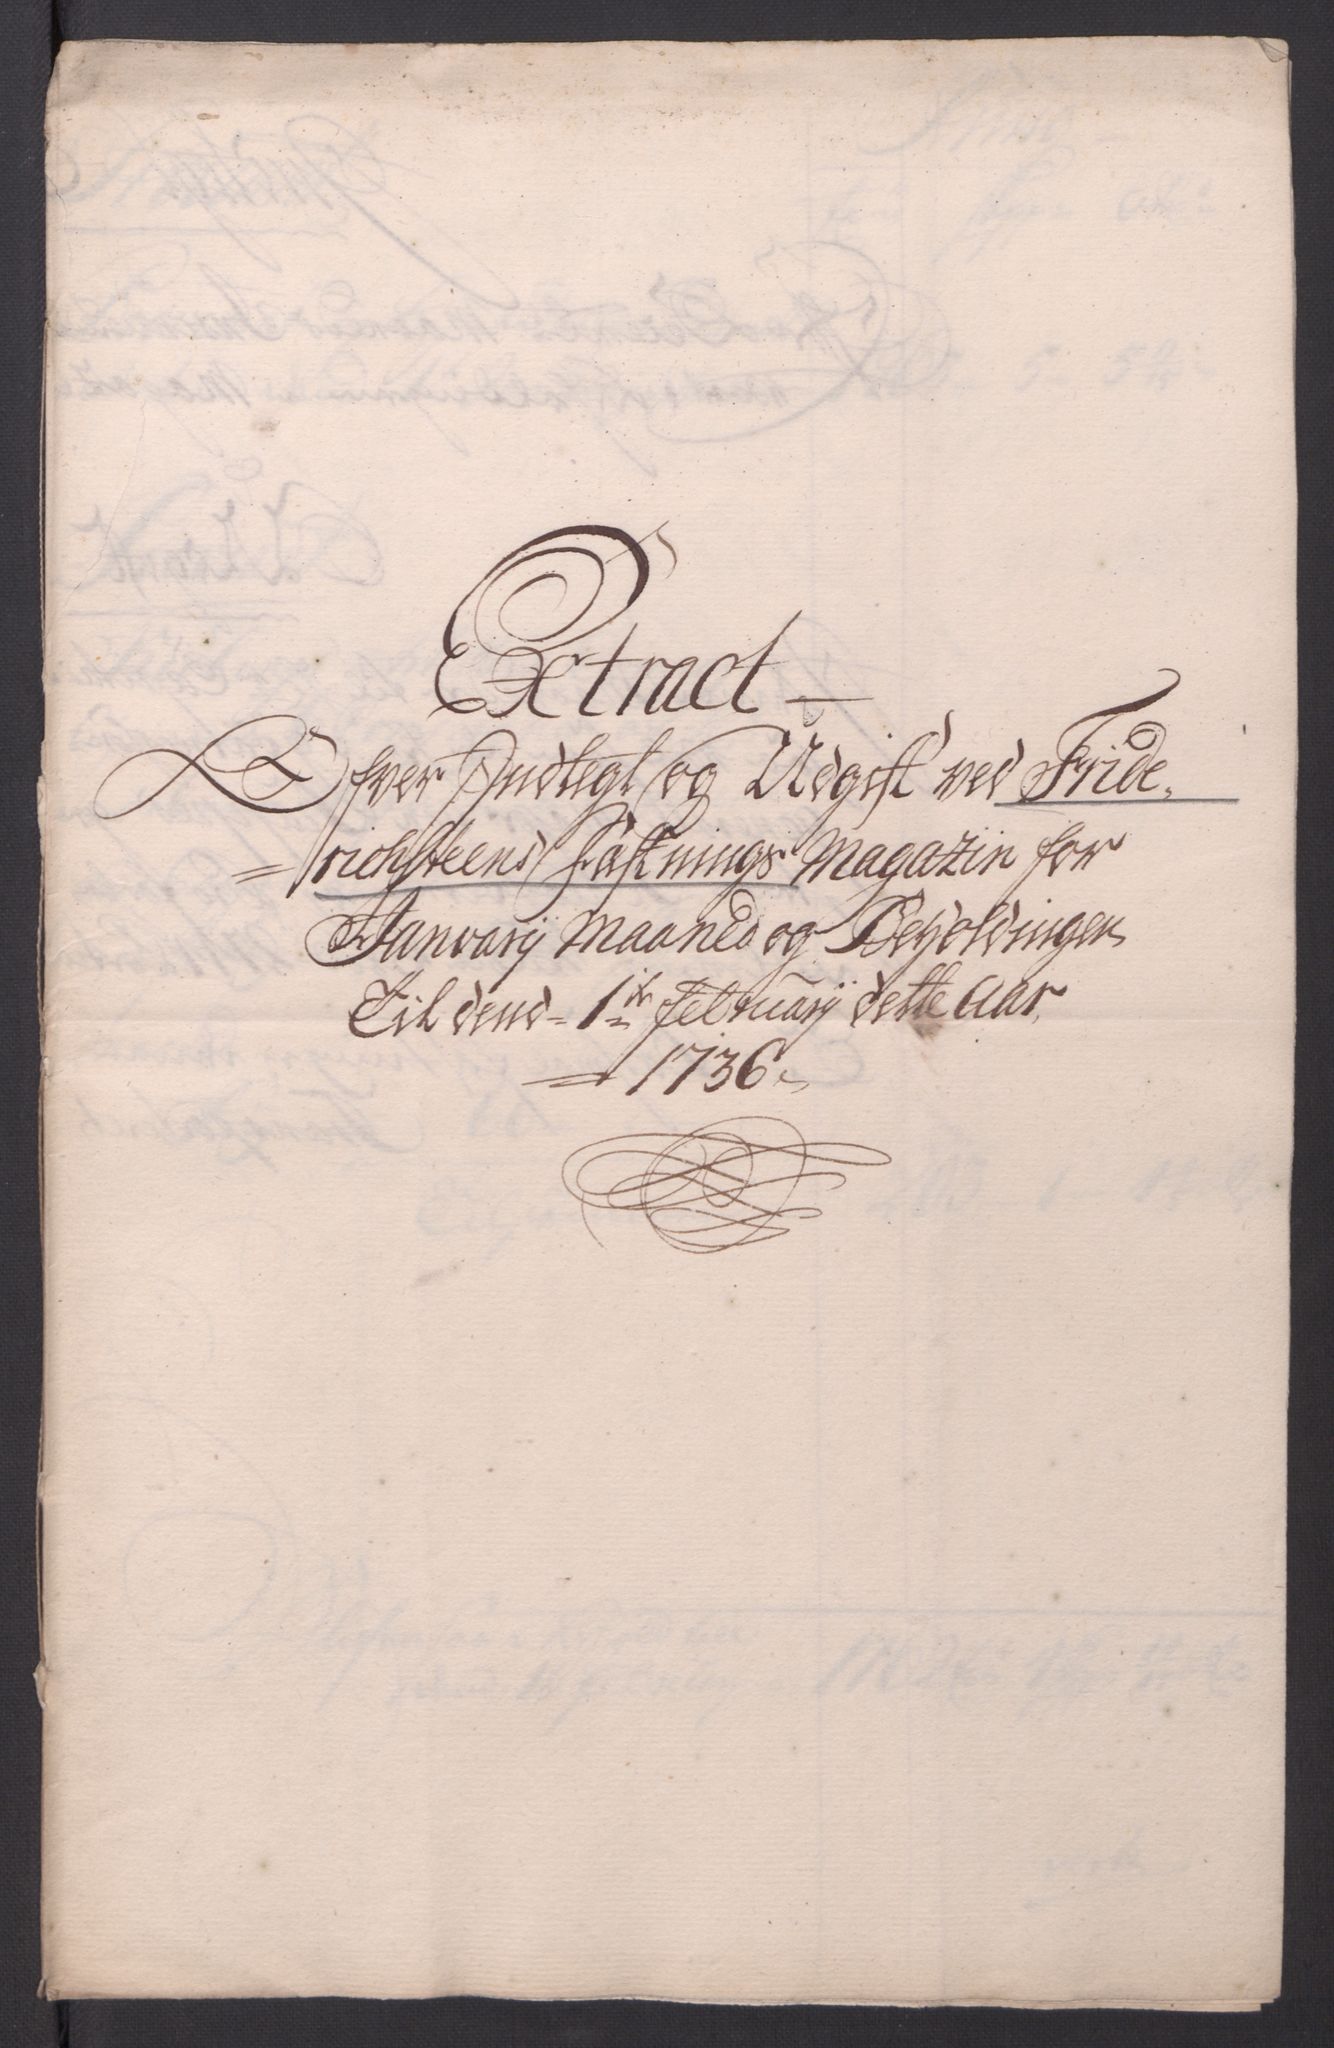 Extract
Ofver Indtegt og Udgift ved Fride,
= richsteens Fæstnings Magazin for
Januarij Maaned og Beholdingen
Til dend 1te Februarij dette Aar
1736